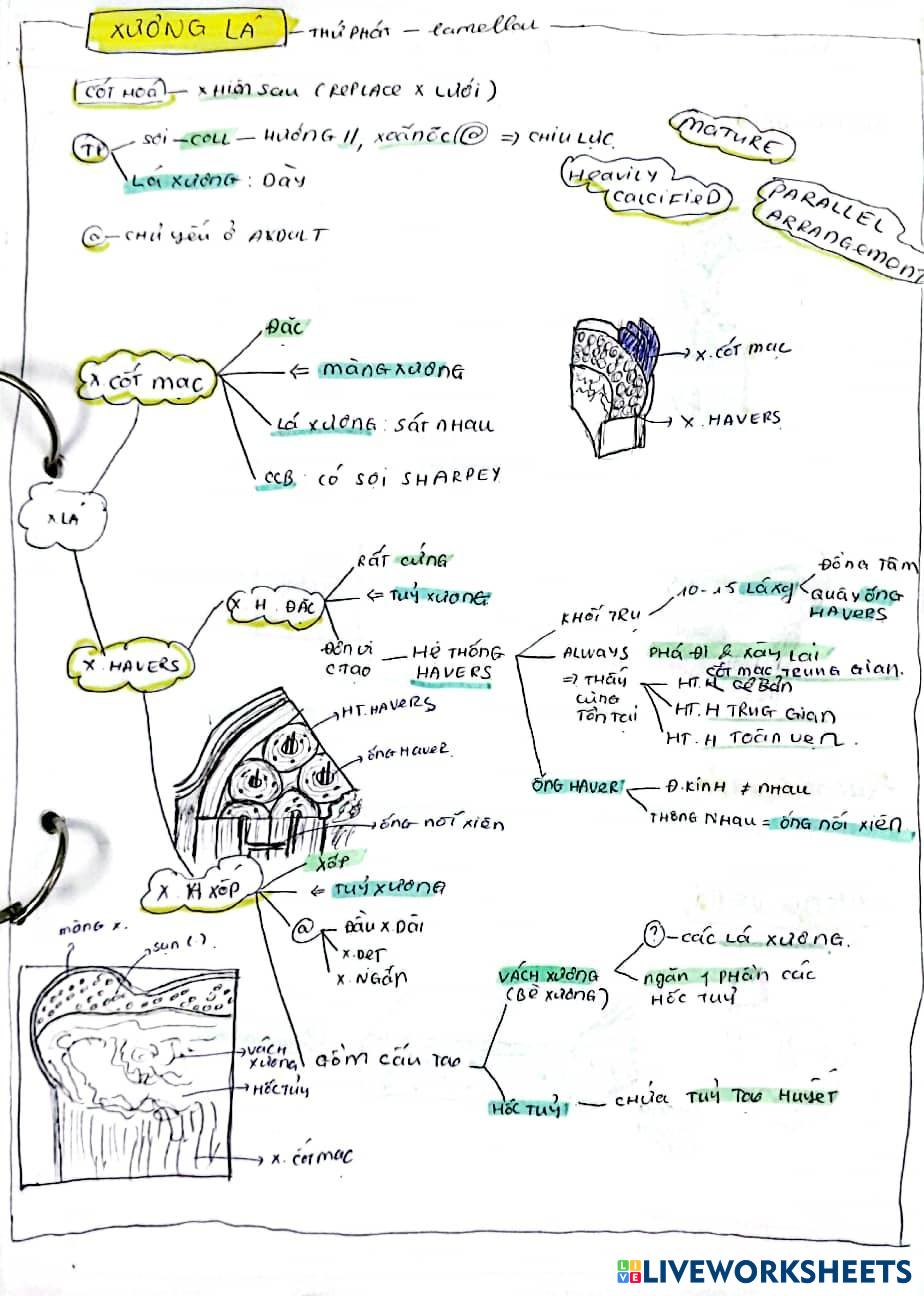 XƯƠNG LÁ – THỨ PHÁT – lamellar
CỐT HOÁ – X HIỆN SAU (REPLACE X LƯỚI)
TP SỢI – COLL – HƯỚNG //, XOẮN ỐC @ => CHỊU LỰC
LÁ XƯƠNG: DÀY
@ – CHỦ YẾU Ở AXDULT
MATURE
HEAVILY CALCIFIED
PARALLEL ARRANGEMENT
X LÁ
X. CỐT MẠC
ĐẶC
<= MÀNG XƯƠNG
LÁ XƯƠNG: SÁT NHAU
CCB: CÓ SỢI SHARPEY
X. CỐT MẠC
X. HAVERS
X. HAVERS
X H. ĐẶC
RẤT CỨNG
<= TUỶ XƯƠNG
ĐƠN VỊ CTẠO – HỆ THỐNG HAVERS
KHỐI TRỤ – 10-15 LÁ XG
ĐỒNG TÂM
QUÂY ỐNG HAVERS
ALWAYS PHÁ ĐI & XÂY LẠI
=> THẤY CÙNG TỒN TẠI
CỐT MẠC TRUNG GIAN.
HT.H
HT.H TRUG GIAN
HT.H TOÀN VẸN.
ỐNG HAVER
Đ.KÍNH ≠ NHAU
THÔNG NHAU = ỐNG NỐI XIÊN
HT.HAVERS
ỐNG HAVER.
ỐNG NỐI XIÊN
X. H XỐP
XỐP
<= TUỶ XƯƠNG
@ ĐẦU X.DÀI
X.DẸT
X.NGẮN
GỒM CẤU TẠO
VÁCH XƯƠNG (BÈ XƯƠNG)
? – CÁC LÁ XƯƠNG.
NGĂN 1 PHẦN CÁC HỐC TUỶ
HỐC TUỶ – CHỨA TUỶ TẠO HUYẾT
MÀNG X.
SỤN (.)
VÁCH XƯƠNG
HỐC TUỶ
X. CỐT MẠC
LIVEWORKSHEETS